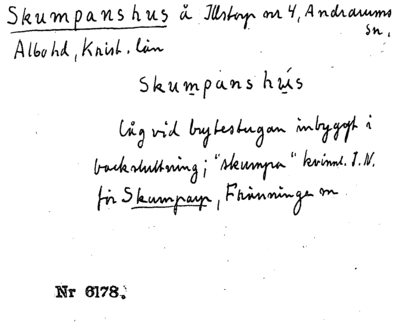 Skumpanshus å Illstorp nr 4, Andrarums
sn.
Albo hd, Krist. län
Skumpanshús
Låg vid brytestugan inbyggt i
backsluttning; "skumpa" kvinnl. I.N.
för Skumparp, Fränninge sn
Nr 6178.